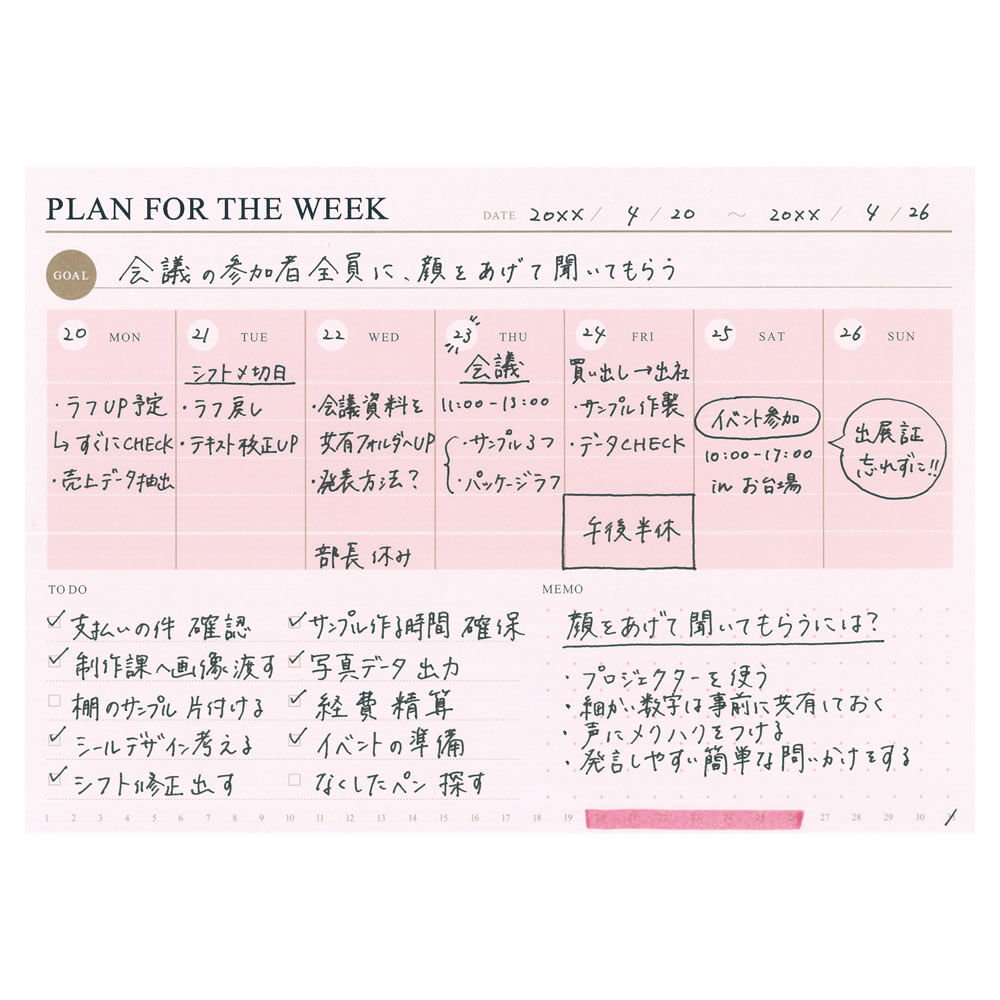 PLAN FOR THE WEEK
DATE 20XX / 4 / 20 ～ 20XX / 4 / 26
GOAL 会議の参加者全員に、顔をあげて聞いてもらう
20 MON
・ラフUP予定
↳すぐにCHECK
・売上データ抽出
21 TUE
シフト〆切日
・ラフ戻し
・テキスト校正UP
22 WED
・会議資料を
共有フォルダへUP
・発表方法?
部長休み
23 THU
会議
11:00-13:00
・サンプル3つ
・パッケージラフ
24 FRI
買い出し→出社
・サンプル作製
・データCHECK
午後半休
25 SAT
イベント参加
10:00-17:00
in お台場
26 SUN
出展証
忘れずに!!
TO DO
✓支払いの件 確認
✓制作課へ画像渡す
□棚のサンプル片付ける
✓シールデザイン考える
✓シフト修正出す
✓サンプル作る時間 確保
✓写真データ出力
✓経費精算
✓イベントの準備
□なくしたペン探す
MEMO
顔をあげて聞いてもらうには?
・プロジェクターを使う
・細かい数字は事前に共有しておく
・声にメリハリをつける
・発言しやすい簡単な問いかけをする
1 2 3 4 5 6 7 8 9 10 11 12 13 14 15 16 17 18 19 20 21 22 23 24 25 26 27 28 29 30 31